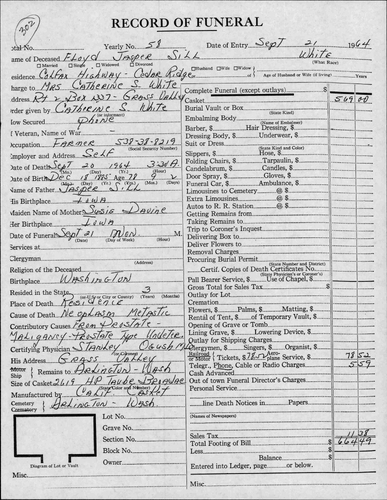 RECORD OF FUNERAL
302
Total No. Yearly No. 58 Date of Entry Sept 21 1964
Name of Deceased Floyd Jasper Sill White
Married Single Widowed Divorced Husband Wife Widow (What Race)
Residence Colfax Highway - Cedar Ridge Age of Husband or Wife (if living) Years
Charge to Mrs Catherine S. White
Complete Funeral (except outlays) $
Address Rt 2 Box - Grass Valley
Casket 569 00
Order given by Catherine S. White
Burial Vault or Box
(or informant) (State Kind)
How Secured phone
Embalming Body
(Name of Embalmer)
If Veteran, Name of War
Barber, $ Hair Dressing, $
Dressing Body, $ Underwear, $
Occupation Farmer 538-38-8219
Suit or Dress
(Social Security Number) (State Kind and Color)
Employer and Address Self
Slippers, $ Hose, $
Folding Chairs, $ Tarpaulin, $
Date of Death Sept 20 1964 3:20A
Candles, $ Gloves, $
Date of Birth Dec 18 1885 Age 78 9 2
Door Spray, $ Gloves, $
Name of Father Jasper Sill
Funeral Car, $ Ambulance, $
Limousines to Cemetery @ $
His Birthplace Iowa
Extra Limousines @ $
Autos to R. R. Station @ $
Maiden Name of Mother Susie Davine
Getting Remains from
Her Birthplace Iowa
Taking Remains to
Trip to Coroner's Inquest
Date of Funeral Sept 21 Mon M
Delivering Box to
(Date) (Day of Week) (Hour)
Services at
Deliver Flowers to
Removal Charges
Clergyman
Procuring Burial Permit
(State Number and District)
Religion of the Deceased
Certif. Copies of Death Certificates No.
(State Physician's or Coroner's)
Birthplace Washington
Pall Bearer Service, $ Use of Chapel, $
Resided in the State 3
Gross Total for Sales Tax $
(Years) (Months)
Outlay for Lot
Place of Death Residence
Cremation
Cause of Death Neoplasm Metastic
Flowers, $ Palms, $ Matting, $
Rental of Tent, $ of Temporary Vault, $
Contributory Causes From Prostate -
Opening of Grave or Tomb
Maligancy - Prostate Type Undeter
Lining Grave, $ Lowering Device, $
Shipping or Outlay Expenses
Certifying Physician Stanley
Clergymen, $ Singers, $ Organist, $
His Address Grass Valley
Railroad or Motor Tickets, $ 78.52 Aeroplane Service, $ 78 52
Motor Ship Remains to Arlington - Wash
Telegr., Phone, Cable or Radio Charges 5 59
Cash Advanced
Size of Casket 2619
Out of town Funeral Director's Charges
(State Color and Number)
Personal Service
Manufactured by Calif Casket
Cemetery Arlington - Wash
line Death Notices in Papers
(Names of Newspapers)
Lot No.
Grave No.
Section No.
Sales Tax 11 38
Total Footing of Bill $ 664 49
Block No.
Less $
Owner
Balance $
Diagram of Lot or Vault
Entered into Ledger, page or below.
Misc. Misc.